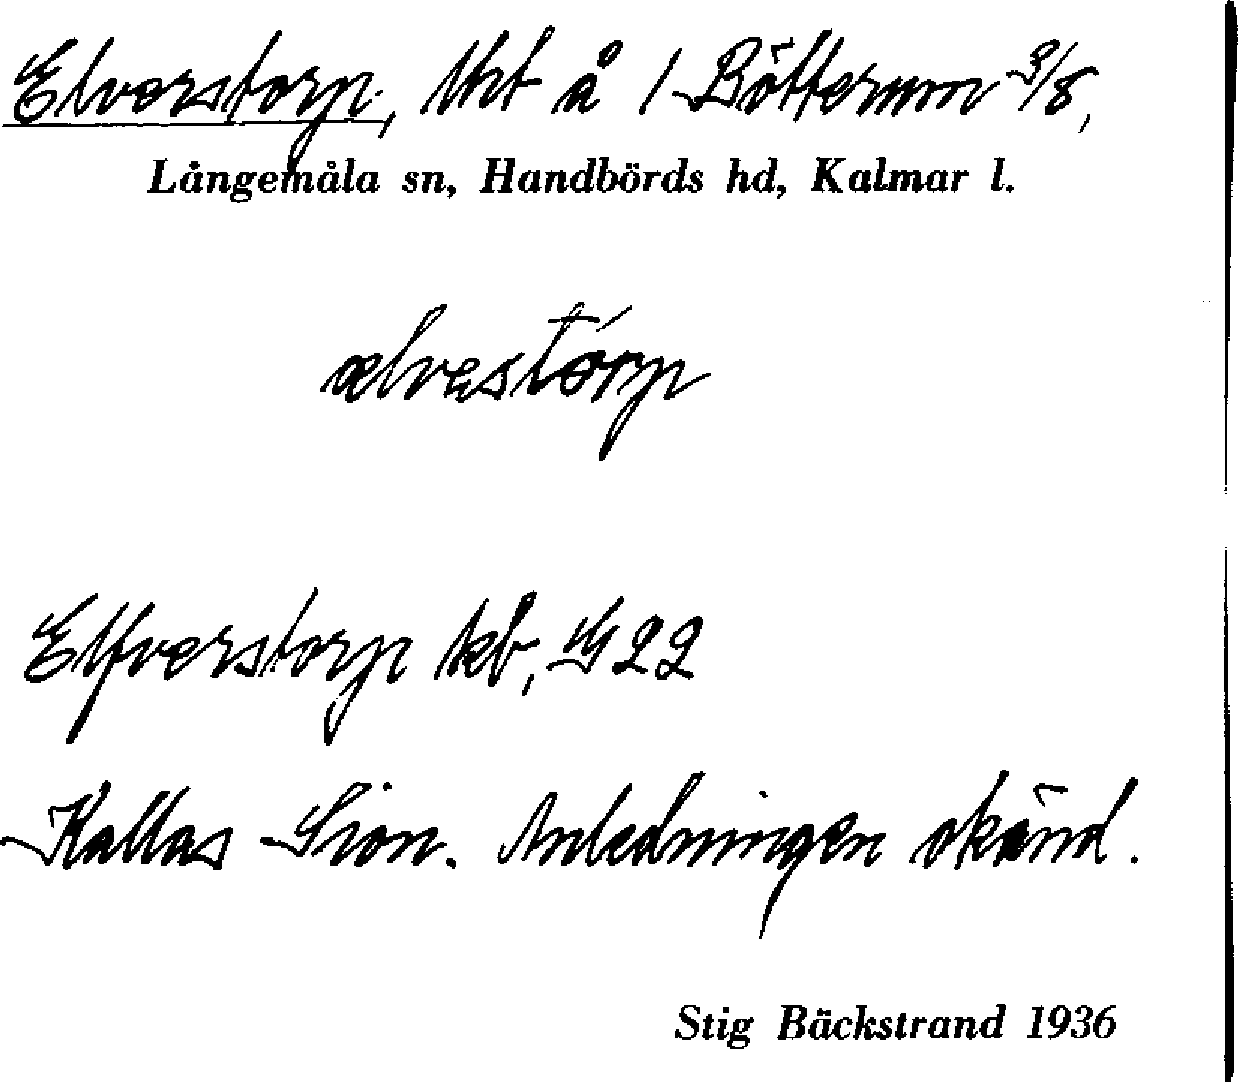 Elverstorp, tht å 1 Bötterum 3/8,
Långemåla sn, Handbörds hd, Kalmar l.
ælvestórp
Elfverstorp kb, G 22
Kallas Sion. Anledningen okänd.
Stig Bäckstrand 1936